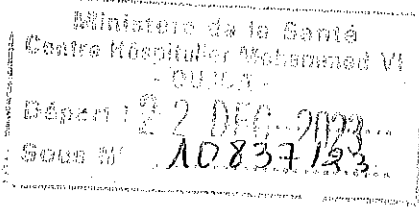 Ministère de la Santé
Centre Hospitalier Mohammed VI
- OUJDA -
Départ : 22 DEC 2023
Sous N° 10837/23